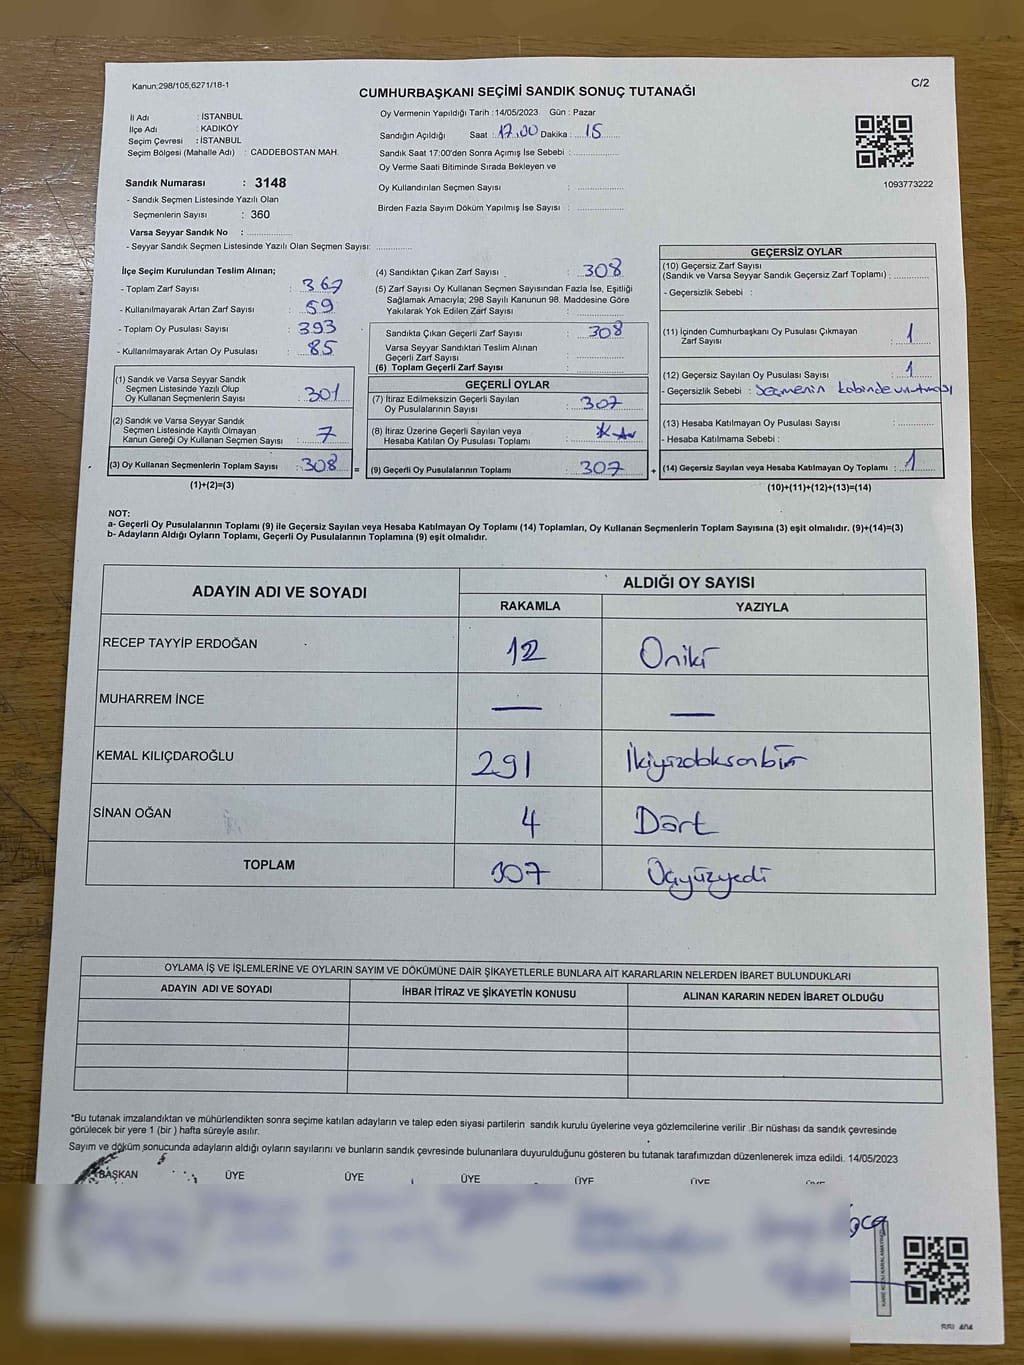 Kanun;298/105,6271/18-1
C/2
CUMHURBAŞKANI SEÇİMİ SANDIK SONUÇ TUTANAĞI
İl Adı : İSTANBUL
İlçe Adı : KADIKÖY
Seçim Çevresi : İSTANBUL
Seçim Bölgesi (Mahalle Adı) : CADDEBOSTAN MAH.
Sandık Numarası : 3148
- Sandık Seçmen Listesinde Yazılı Olan
Seçmenlerin Sayısı : 360
Varsa Seyyar Sandık No :
- Seyyar Sandık Seçmen Listesinde Yazılı Olan Seçmen Sayısı:
Oy Vermenin Yapıldığı Tarih : 14/05/2023 Gün : Pazar
Sandığın Açıldığı Saat : 17.00 Dakika : 15
Sandık Saat 17:00'den Sonra Açımış İse Sebebi :
Oy Verme Saati Bitiminde Sırada Bekleyen ve
Oy Kullandırılan Seçmen Sayısı :
Birden Fazla Sayım Döküm Yapılmış İse Sayısı :
1093773222
İlçe Seçim Kurulundan Teslim Alınan;
- Toplam Zarf Sayısı : 367
- Kullanılmayarak Artan Zarf Sayısı : 59
- Toplam Oy Pusulası Sayısı : 393
- Kullanılmayarak Artan Oy Pusulası : 85
(1) Sandık ve Varsa Seyyar Sandık
Seçmen Listesinde Yazılı Olup
Oy Kullanan Seçmenlerin Sayısı : 301
(2) Sandık ve Varsa Seyyar Sandık
Seçmen Listesinde Kayıtlı Olmayan
Kanun Gereği Oy Kullanan Seçmen Sayısı : 7
(3) Oy Kullanan Seçmenlerin Toplam Sayısı : 308
(1)+(2)=(3)
(4) Sandıktan Çıkan Zarf Sayısı : 308
(5) Zarf Sayısı Oy Kullanan Seçmen Sayısından Fazla İse, Eşitliği
Sağlamak Amacıyla; 298 Sayılı Kanunun 98. Maddesine Göre
Yakılarak Yok Edilen Zarf Sayısı :
Sandıkta Çıkan Geçerli Zarf Sayısı : 308
Varsa Seyyar Sandıktan Teslim Alınan
Geçerli Zarf Sayısı :
(6) Toplam Geçerli Zarf Sayısı :
GEÇERLİ OYLAR
(7) İtiraz Edilmeksizin Geçerli Sayılan
Oy Pusulalarının Sayısı : 307
(8) İtiraz Üzerine Geçerli Sayılan veya
Hesaba Katılan Oy Pusulası Toplamı :
(9) Geçerli Oy Pusulalarının Toplamı : 307
=
+
GEÇERSİZ OYLAR
(10) Geçersiz Zarf Sayısı
(Sandık ve Varsa Seyyar Sandık Geçersiz Zarf Toplamı) :
- Geçersizlik Sebebi :
(11) İçinden Cumhurbaşkanı Oy Pusulası Çıkmayan
Zarf Sayısı : 1
(12) Geçersiz Sayılan Oy Pusulası Sayısı : 1
- Geçersizlik Sebebi : Seçmenin kabinde unutması
(13) Hesaba Katılmayan Oy Pusulası Sayısı :
- Hesaba Katılmama Sebebi :
(14) Geçersiz Sayılan veya Hesaba Katılmayan Oy Toplamı : 1
(10)+(11)+(12)+(13)=(14)
NOT:
a- Geçerli Oy Pusulalarının Toplamı (9) ile Geçersiz Sayılan veya Hesaba Katılmayan Oy Toplamı (14) Toplamları, Oy Kullanan Seçmenlerin Toplam Sayısına (3) eşit olmalıdır. (9)+(14)=(3)
b- Adayların Aldığı Oyların Toplamı, Geçerli Oy Pusulalarının Toplamına (9) eşit olmalıdır.
ADAYIN ADI VE SOYADI
ALDIĞI OY SAYISI
RAKAMLA YAZIYLA
RECEP TAYYİP ERDOĞAN 12 Oniki
MUHARREM İNCE — —
KEMAL KILIÇDAROĞLU 291 İkiyüzdoksanbir
SİNAN OĞAN 4 Dört
TOPLAM 307 Üçyüzyedi
OYLAMA İŞ VE İŞLEMLERİNE VE OYLARIN SAYIM VE DÖKÜMÜNE DAİR ŞİKAYETLERLE BUNLARA AİT KARARLARIN NELERDEN İBARET BULUNDUKLARI
ADAYIN ADI VE SOYADI İHBAR İTİRAZ VE ŞİKAYETİN KONUSU ALINAN KARARIN NEDEN İBARET OLDUĞU
*Bu tutanak imzalandıktan ve mühürlendikten sonra seçime katılan adayların ve talep eden siyasi partilerin sandık kurulu üyelerine veya gözlemcilerine verilir .Bir nüshası da sandık çevresinde
görülecek bir yere 1 (bir ) hafta süreyle asılır.
Sayım ve döküm sonucunda adayların aldığı oyların sayılarını ve bunların sandık çevresinde bulunanlara duyurulduğunu gösteren bu tutanak tarafımızdan düzenlenerek imza edildi. 14/05/2023
BAŞKAN ÜYE ÜYE ÜYE ÜYE ÜYE